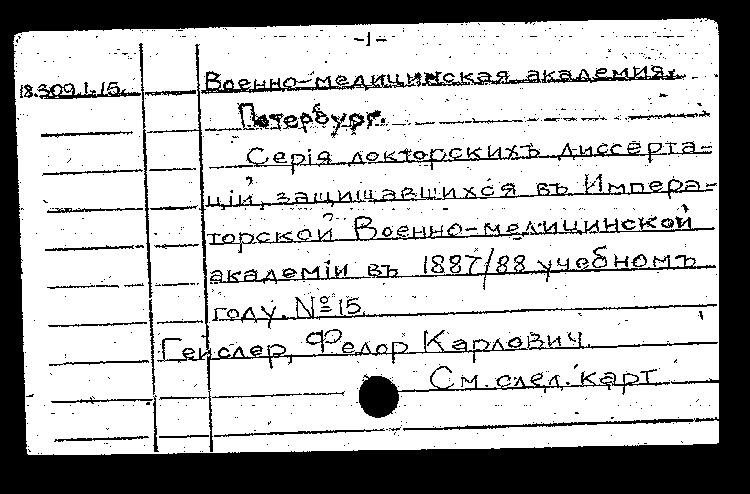 -1-
18.309.1.15. Военно-медицинская академия,
Петербург.
Серія докторскихъ диссерта=
цій, защищавшихся въ Импера=
торской Военно-медицинской
академіи въ 1887/88 учебномъ
году. № 15.
Гейслер, Федор Карлович.
См. след. карт